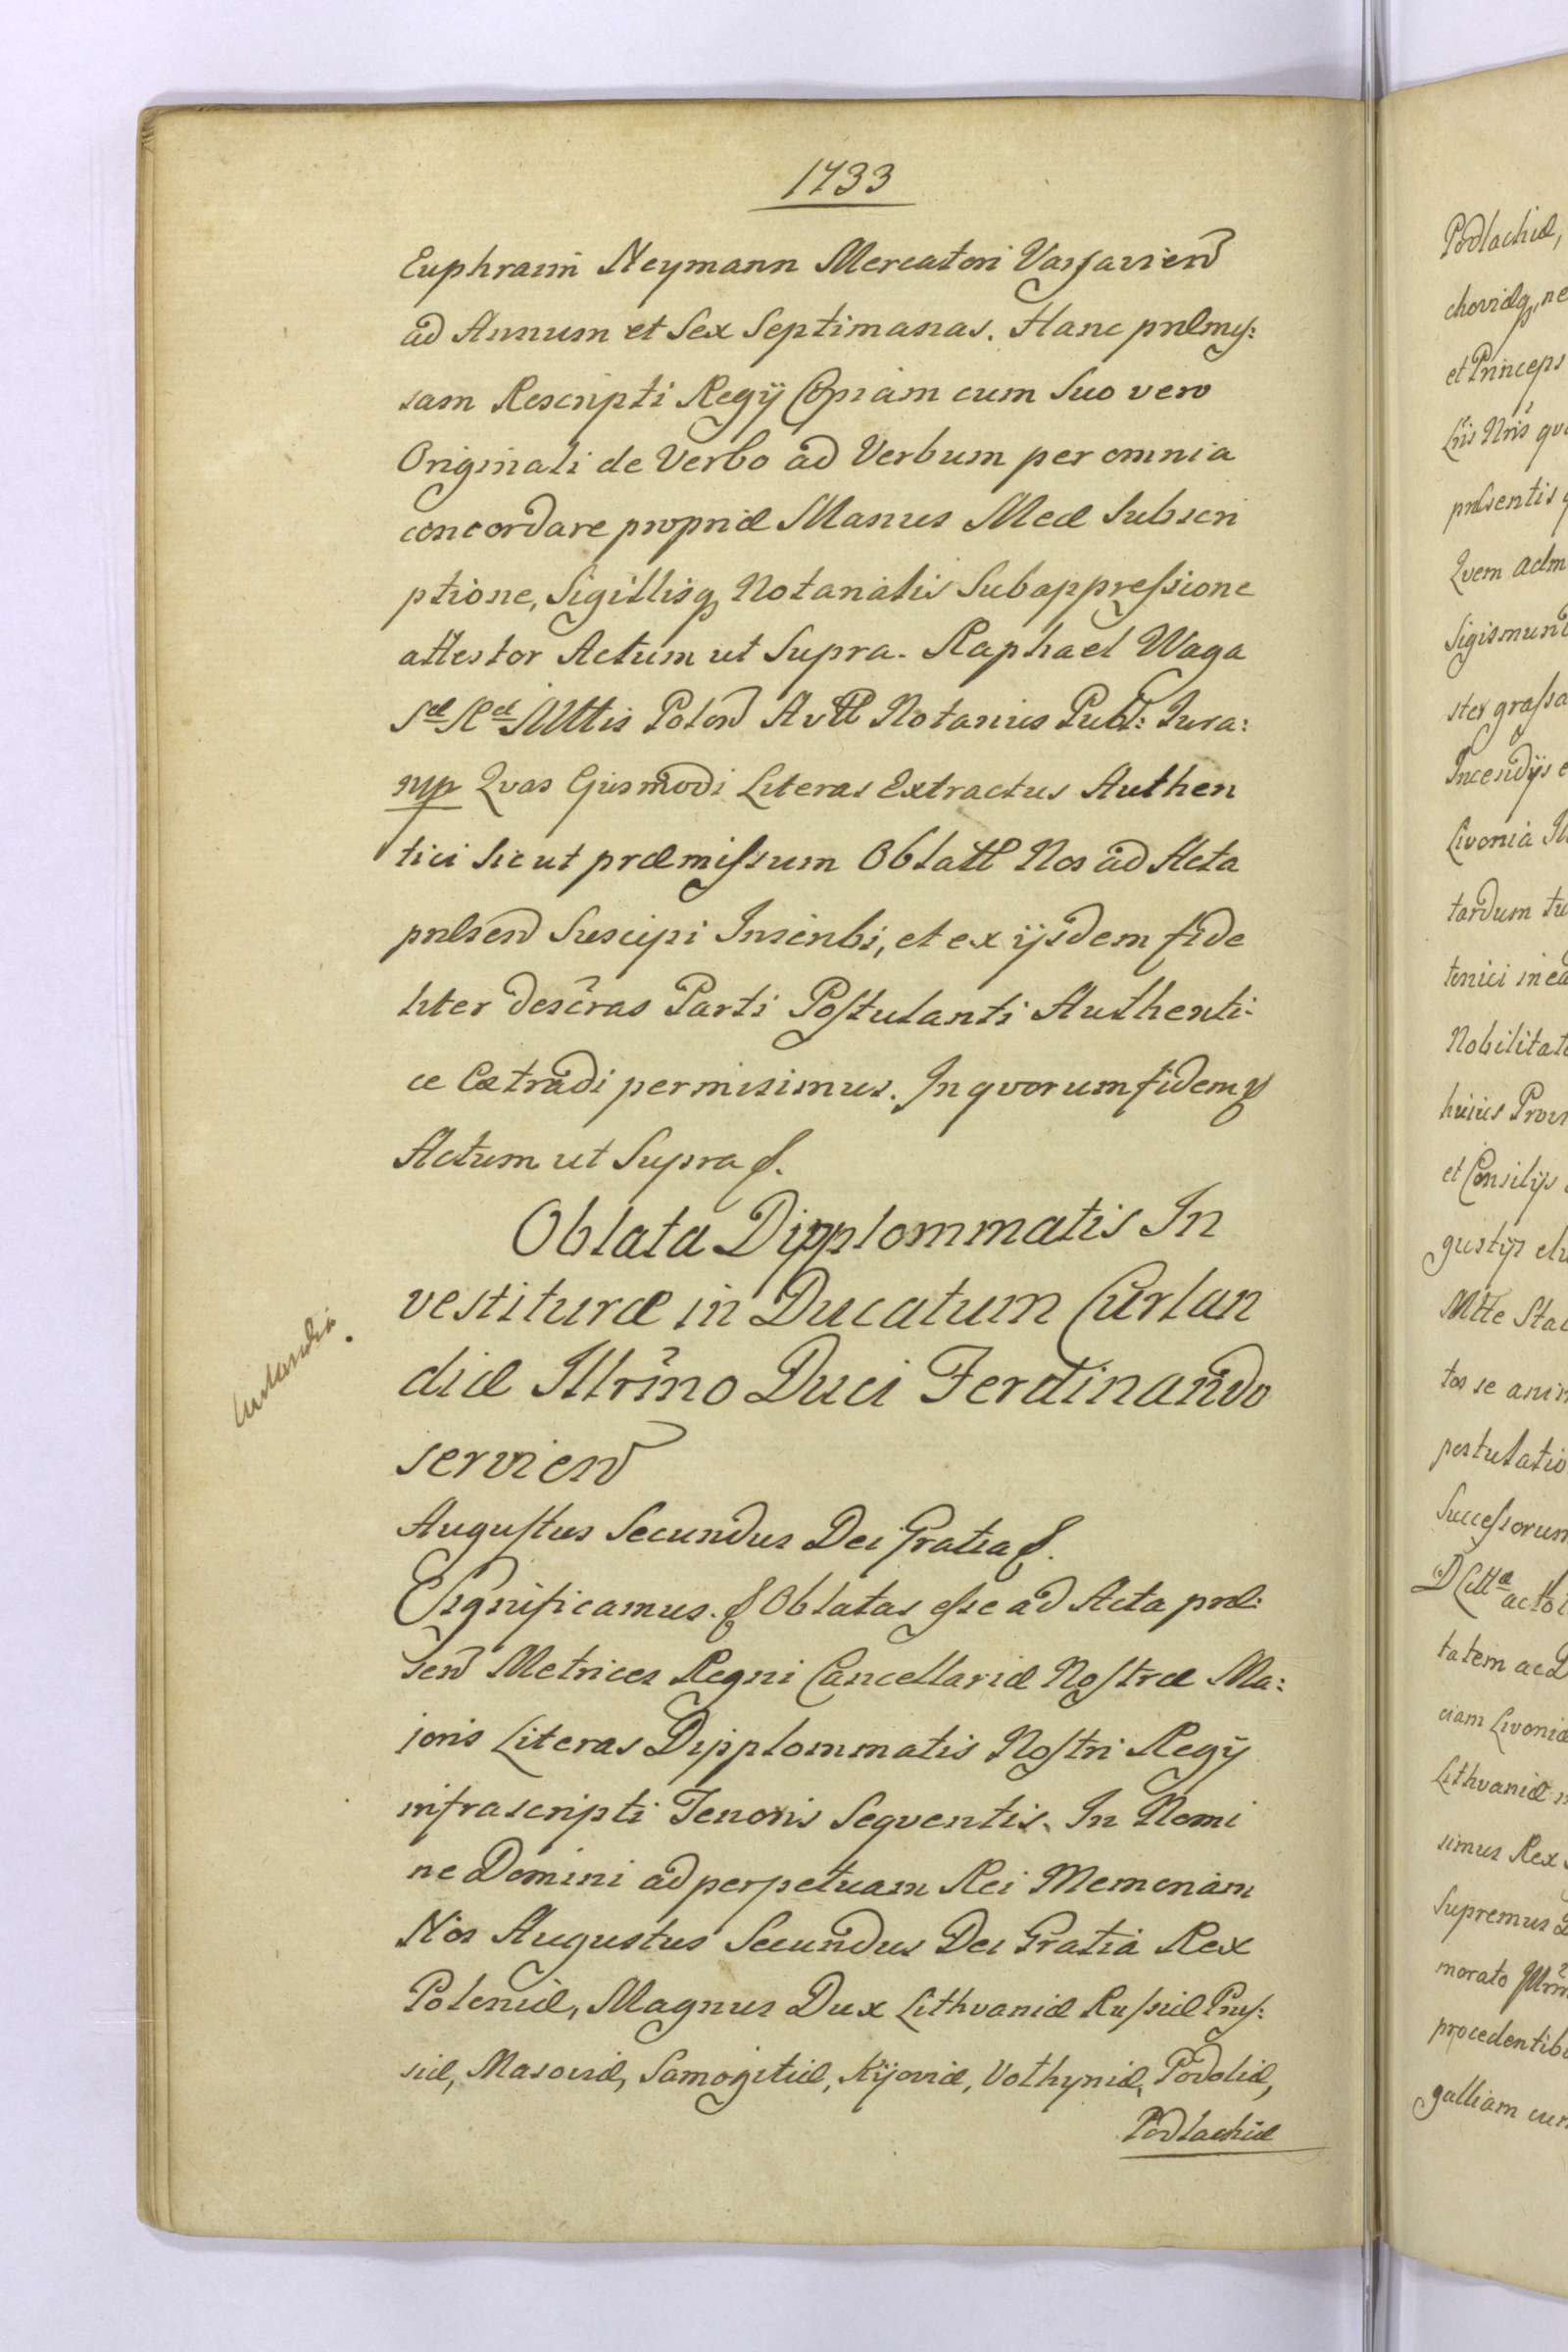 1733
Euphraim Neymann Mercatori Varsavien
ad Annum et Sex Septimanas. Hanc pnlmis:
sam Rescripti Regÿ Copiam cum Suo vero
Originali de Verbo ad Verbum per omnia
concordare propriæ Manus Meæ Subscri
ptione, Sigillisq Notarialis Subappressione
attestor Actum ut Supra. Raphael Waga
Sæ Ræ Mttis Polon Autl Notarius Publ: Jura:
mp Qvas Ejusmodi Literas Extractus Authen
tici sicut præmissum Oblatl Nos ad Acta
pnlsen Suscipi Inscribi, et ex ijsdem fide
liter descras Parti Postulanti Authenti-
ce Extradi permisimus. In qvorum fidem
Actum ut Supra
Oblata Dipplommatis In
vestituræ in Ducatum Curlan
diæ Illrmo Duci Ferdinando
servien
Curlandia.
Augustus Secundus Dei Gratia
Significamus. Oblatas esse ad Acta pnl:
sen Metrices Regni Cancellariæ Nostræ Ma:
joris Literas Dipplommatis Nostri Regÿ
infrascripti Tenoris Seqventis. In Nomi
ne Domini ad perpetuam Rei Memoriam
Nos Augustus Secundus Dei Gratia Rex
Poloniæ, Magnus Dux Lithvaniæ Russiæ Prus:
siæ, Masoviæ, Samogitiæ, Kijoviæ, Volhyniæ, Podoliæ,
Podlachiæ
Podlachiæ,
et Princeps
pnlsentis
Qvem adm
Sigismund
ster grassa
Incendÿs e
Livonia
tardum tu
tonici in ea
Nobilitat
huius Prov
et Consilÿs
gustÿs
Mtte Sta
tos se anim
postulatio
Successorum
tatem ac
ciam Livoniæ
Lithvaniæ
simus Rex
Supremus
morato Illrm
procedentib
galliam cur